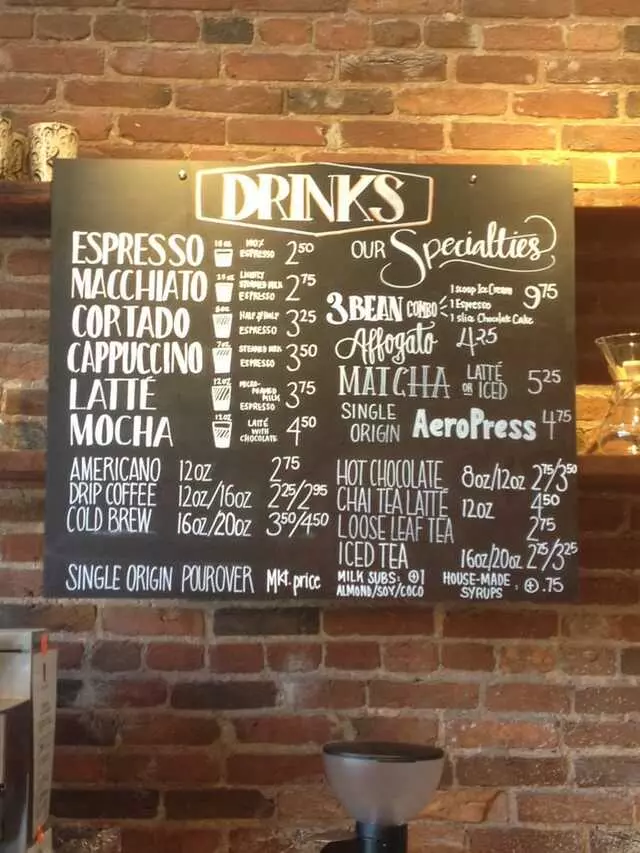 DRINKS
ESPRESSO 100% ESPRESSO 2.50
MACCHIATO LIGHTLY STEAMED MILK ESPRESSO 2.75
CORTADO HALF & HALF ESPRESSO 3.25
CAPPUCCINO STEAMED MILK ESPRESSO 3.50
LATTÉ 12OZ MICRO-FOAMED MILK ESPRESSO 3.75
MOCHA 12OZ LATTÉ WITH CHOCOLATE 4.50
AMERICANO 12OZ 2.75
DRIP COFFEE 12OZ/16OZ 2.25/2.95
COLD BREW 16OZ/20OZ 3.50/4.50
SINGLE ORIGIN POUROVER Mkt. price
OUR Specialties
3 BEAN COMBO 1 scoop Ice Cream 1 Espresso 1 slice Chocolate Cake 9.75
Affogato 4.25
MATCHA LATTÉ OR ICED 5.25
SINGLE ORIGIN AeroPress 4.75
HOT CHOCOLATE 8OZ/12OZ 2.75/3.50
CHAI TEA LATTÉ 12OZ 4.50
LOOSE LEAF TEA 2.75
ICED TEA 16OZ/20OZ 2.75/3.25
MILK SUBS: +1
ALMOND/SOY/COCO
HOUSE-MADE SYRUPS +.75